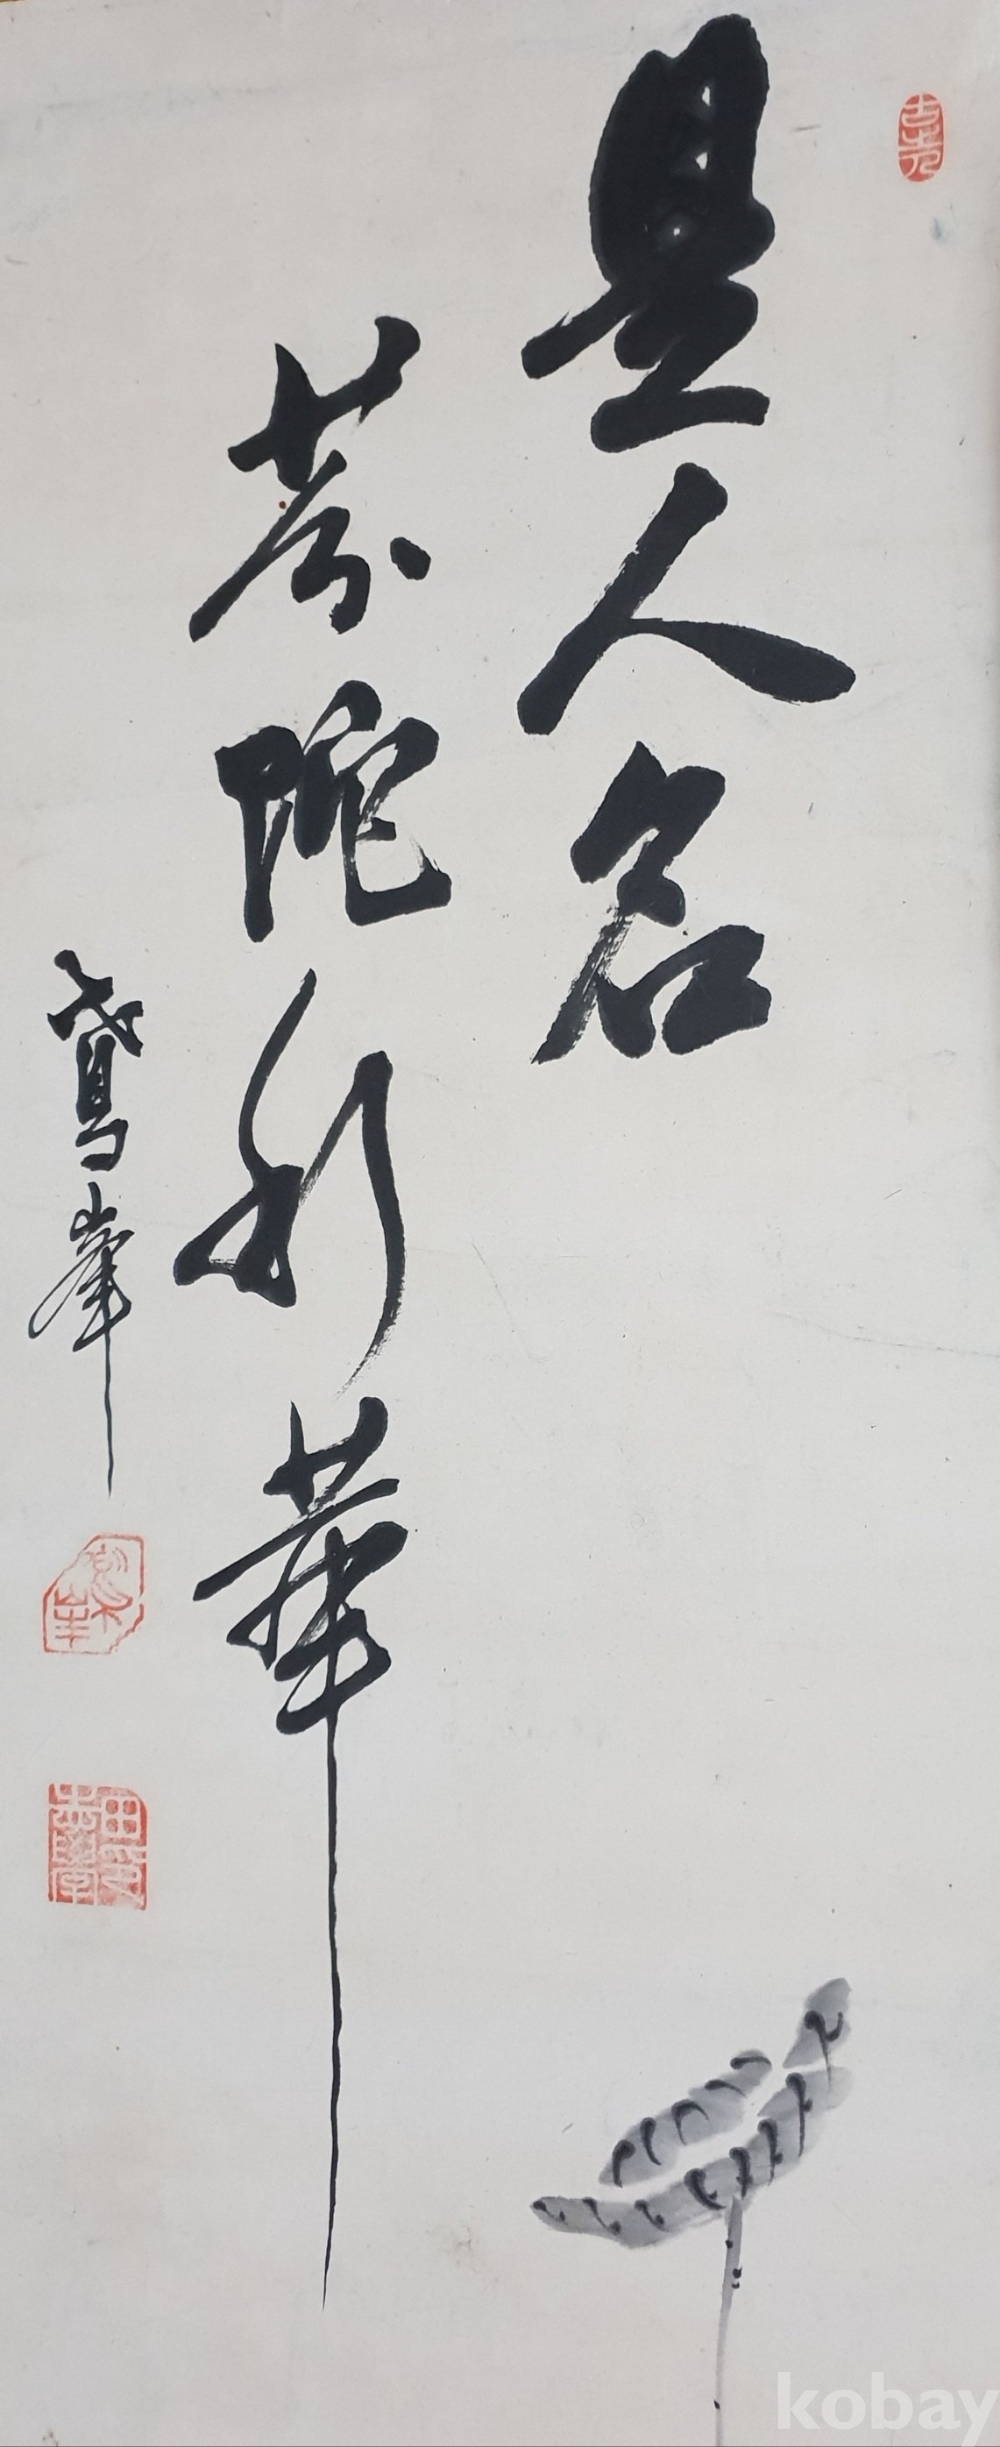 是人名
芬陀利華
鷲峯
kobay